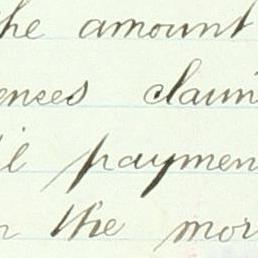 the amount
ences claim
il paymen
n the mor